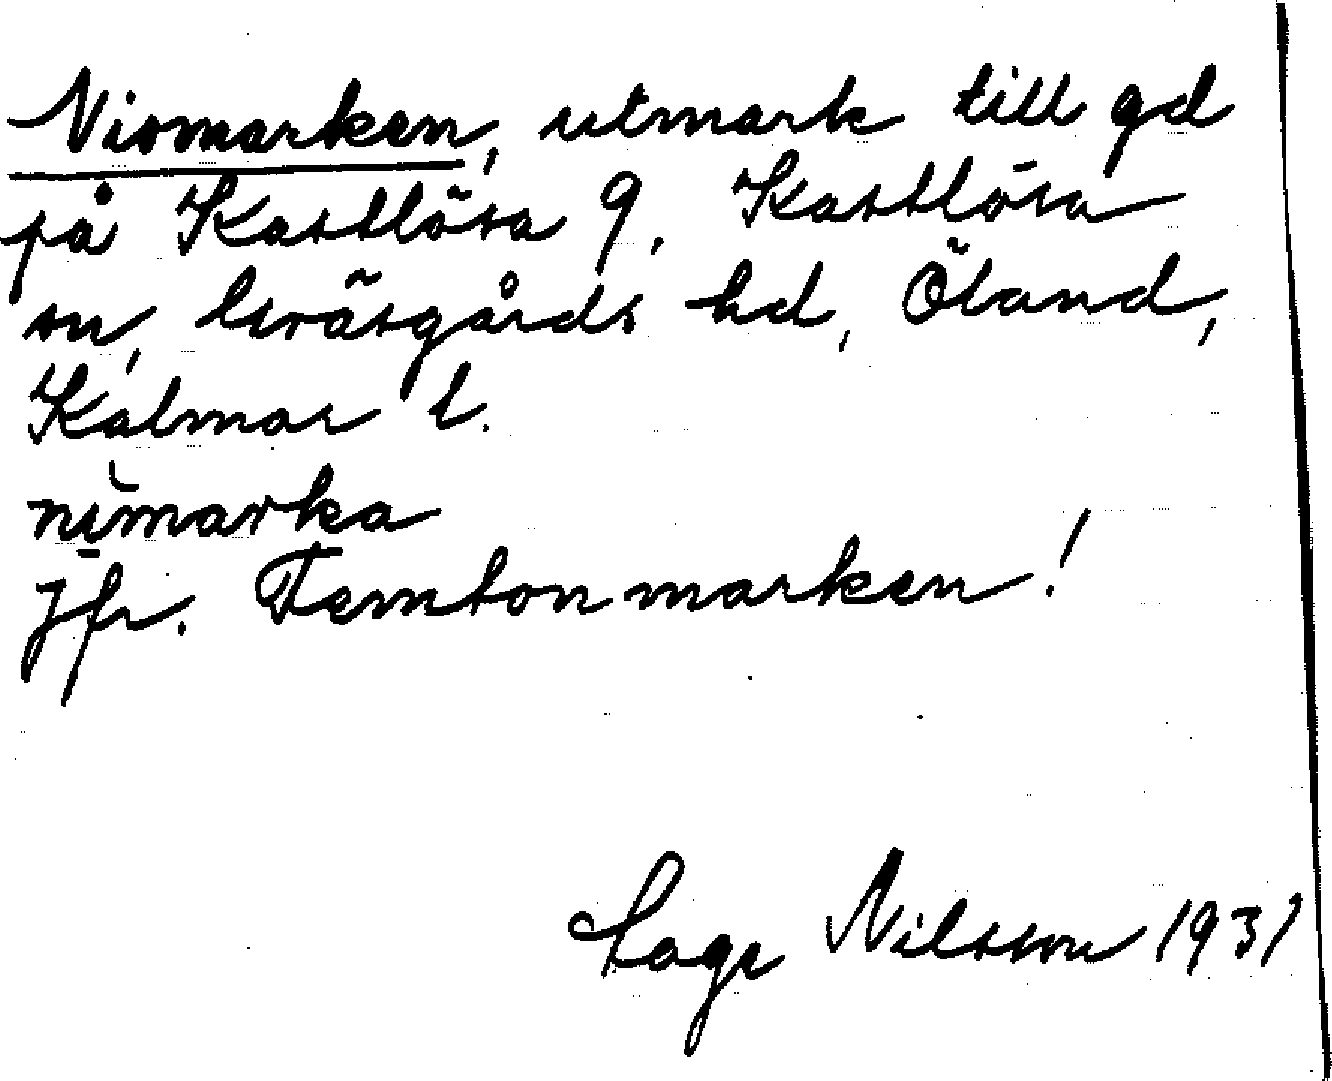 Niomarken, utmark till gd
på Kastlösa 9, Kastlösa
sn, Gräsgårds hd, Öland,
Kalmar l.
nimarka
Jfr. Femtonmarken!
Lage Nilsson 1931